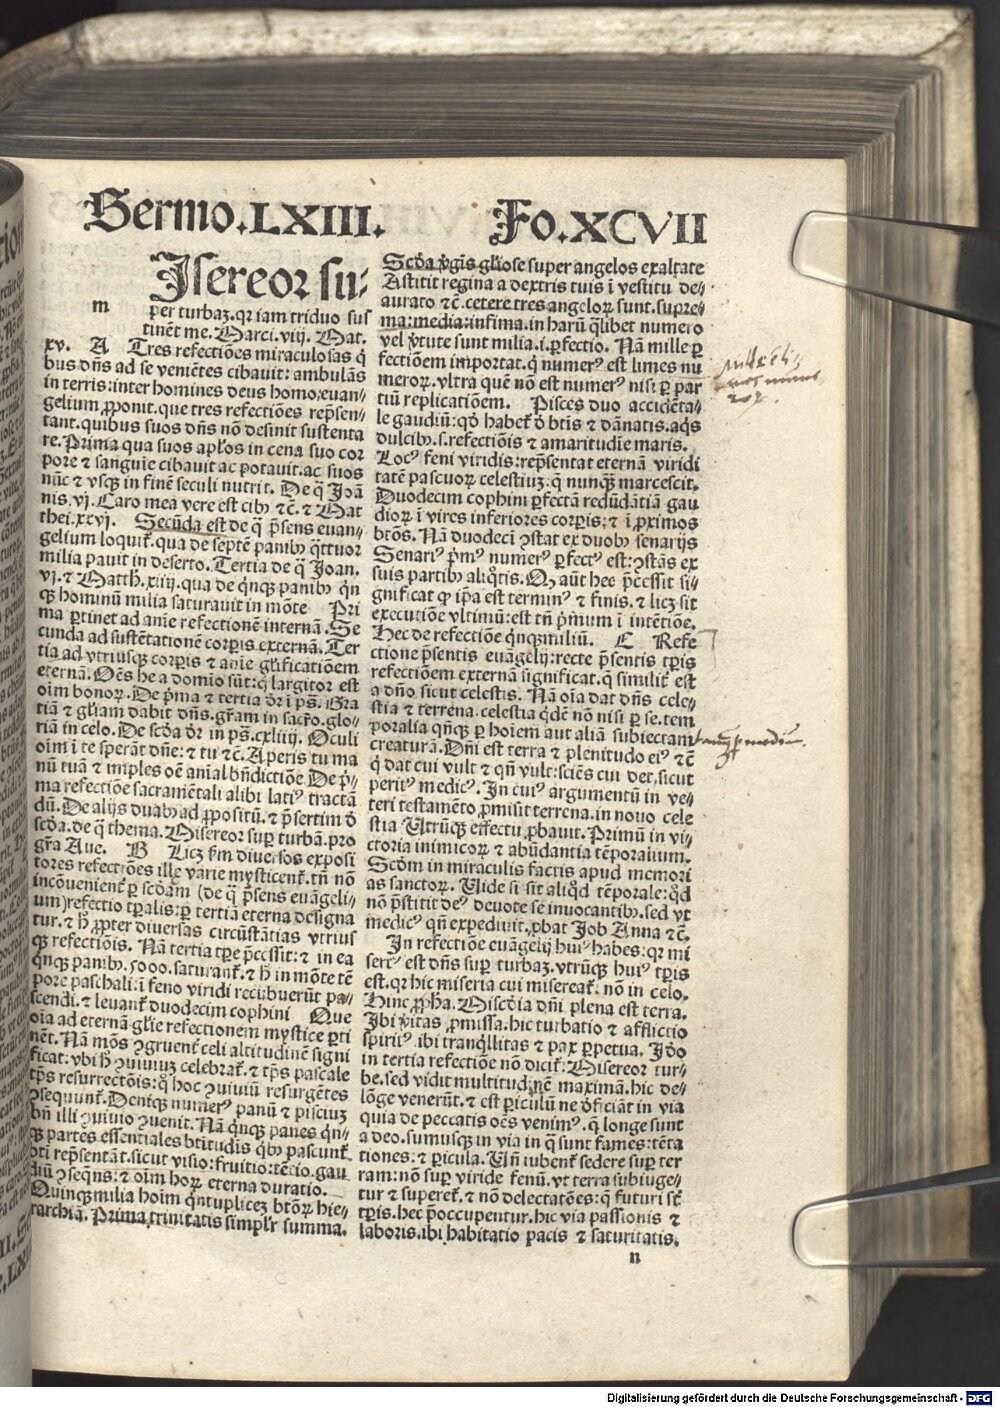 Sermo.LXIII.
Fo.XCVII
m
Isereor su⸗
per turbaꝫ.qꝛ iam triduo sus
tinēt me. Marci.viij. Mat.
xv. A Tres refectiōes miraculosas q̄
bus dn̄s ad se veniētes cibauit: ambulās
in terris:inter homines deus homo:euan⸗
gelium ꝓponit. que tres refectiōes rep̄sen⸗
tant.quibus suos dn̄s nō desinit sustenta
re. Prima qua suos aplos in cena suo cor
pore ⁊ sanguīe cibauit ac potauit.ac suos
nūc ⁊ vsqꝫ in finē seculi nutrit. De q̄ Joā
nis.vj. Caro mea vere est cibꝰ ⁊c. ⁊ Mat
thei.xxvj. Secūda est de q̄ p̄sens euan⸗
gelium loquit̄.qua de septē panibꝰ q̄ttuor
milia pauit in deserto. Tertia de q̄ Joan.
vi. ⁊ Matth. xiiij. qua de qn̄qꝫ panibꝰ qn̄
qꝫ hominū milia saturauit in mōte Pri
ma ꝑtinet ad aīe refectionē internā. Se
cunda ad sustētationē corꝑis externā. Ter
tia ad vtriusqꝫ corꝑis ⁊ aīe gl̄ificatiōem
eternā. Oēs he a domīo sūt: q̄ largitor est
oīm bonoꝝ. De p̄ma ⁊ tertia dr̄ ī ps̄. Gra
tiā ⁊ gl̄iam dabit dn̄s. gr̄am in sacro. glo⸗
riā in celo. De scd̄a dr̄ in ps̄.cxliiij. Oculi
oīm ī te sperāt dn̄e: ⁊ tu ⁊c. Aperis tu ma
nū tuā ⁊ imples oē aīal bn̄dictiōe De p̄⸗
ma refectiōe sacramētali alibi latiꝰ tractā
dū. De alijs duabꝰ ad ꝓpositū. ⁊ p̄sertim d̄
scd̄a. de q̄ thema. Misereor suꝑ turbā. pro
gr̄a Aue. B Licꝫ fm diuersos exposi
tores refectiōes ille varie mysticent̄. tn̄ nō
incōuenient̄ ꝑ scd̄am (de q̄ p̄sens euāgeli⸗
um)refectio tp̄alis: ꝑ tertiā eterna designa
tur. ⁊ h̄ ꝓpter diuersas circūstātias vtrius
qꝫ refectiōis. Nā tertia tp̄e p̄cessit: ⁊ in ea
qn̄qꝫ panibꝰ. 5000. saturant̄. ⁊ h̄ in mōte tē
pore paschali: ī feno viridi recubuerūt pa⸗
scendi. ⁊ leuant̄ duodecim cophini Que
oīa ad eternā gl̄ie refectionem mystice ꝑti
nēt. Nā mōs ꝯgruent̄ celi altitudinē signi
ficat: vbi h̄ ꝯuiuiuꝫ celebrat̄. ⁊ tp̄s pascale
tp̄s resurrectōis: q̄ hoc ꝯuiuiū resurgētes
ꝯsequunt̄. Deniqꝫ numerꝰ panū ⁊ pisciuꝫ
bn̄ illi ꝯuiuio ꝯuenit. Nā qn̄qꝫ panes qn̄⸗
qꝫ partes essentiales btitudīs qͥbꝰ pascunt̄
bti rep̄sentāt. sicut visio: fruitio: tētio. gau
diū ꝯseqn̄s: ⁊ oīm hoꝝ eterna duratio.
Quinqꝫ milia hoīm qn̄tuplicez btōꝝ hie⸗
rarchiā. Prima trinitatis simplr̄ summa.
Scd̄a v̄gīs gl̄iose super angelos exaltate
Astitit regina a dextris tuis ī vestitu de⸗
aurato ⁊c̄. cetere tres angeloꝝ sunt. supre⸗
ma: media: infima. in harū qͥlibet numero
vel v̄tute sunt milia. i. ꝑfectio. Nā mille ꝑ
fectiōem importat. q̄ numerꝰ est limes nu
meroꝝ. vltra quē nō est numerꝰ nisi ꝑ par
tiū replicatiōem. Pisces duo accidēta⸗
le gaudiū: qd̄ habet̄ d̄ btis ⁊ dānatis. aqͥs
dulcibꝰ. s. refectiōis ⁊ amaritudīe maris.
Locꝰ feni viridis: rep̄sentat eternā viridi
tatē pascuoꝝ celestiuꝫ: q̄ nunqꝫ marcescit.
Duodecim cophini ꝑfectā redūdātiā gau
dioꝝ ī vires inferiores corꝑis: ⁊ ī ꝓximos
btōs. Nā duodecī ꝯstat ex duobꝰ senarijs
Senariꝰ p̄mꝰ numerꝰ ꝑfectꝰ est: ꝯstās ex
suis partibꝰ aliqͦtis. Qꝫ aūt hec p̄cessit si⸗
gnificat qꝛ ip̄a est terminꝰ ⁊ finis. ⁊ licꝫ sit
executiōe vltimū: est tn̄ p̄mum ī intētiōe.
Hec de refectiōe qn̄qꝫmiliū. C Refe
ctione p̄sentis euāgelij: recte p̄sentis tꝑis
refectiōem externā significat. q̄ similit̄ est
a dn̄o sicut celestis. Nā oīa dat dn̄s cele⸗
stia ⁊ terrena. celestia qͥdē nō nisi ꝑ se. tem
poralia qn̄qꝫ ꝑ hoīem aut aliā subiectam
creaturā. Dn̄i est terra ⁊ plenitudo eiꝰ ⁊c̄
q̄ dat cui vult ⁊ qn̄ vult: sciēs cui det. sicut
peritꝰ medicꝰ. In cuiꝰ argumentū in ve⸗
teri testamēto ꝓmisit terrena. in nouo cele
stia Utrūqꝫ effectu ꝓbauit. Primū in vi⸗
ctoria inimicoꝝ ⁊ abūdantia tēporalium.
Scdm in miraculis factis apud memori
as sanctoꝝ. Uide si sit aliqd̄ tēporale: qd̄
nō p̄stitit deꝰ deuote se inuocantibꝰ. sed vt
medicꝰ qn̄ expediuit. ꝓbat Job Anna ⁊c̄.
In refectiōe euāgelij huiꝰ habes: qꝛ mi
sertꝰ est dn̄s suꝑ turbaꝫ. vtrūqꝫ huiꝰ tꝑis
est. qꝛ hic miseria cui misereat̄. nō in celo.
Hinc ꝓpha. Miscd̄ia dn̄i plena est terra.
Ibi v̄itas ꝓmissa. hic turbatio ⁊ afflictio
spirit̄ꝰ. ibi tranqͥllitas ⁊ pax ꝑpetua. Iō
in tertia refectiōe nō dicit̄: Misereor tur⸗
be. sed vidit multitudinē maximā. hic de⸗
lōge venerūt. ⁊ est ꝑiculū ne d̄ficiāt in via
quia de peccatis oēs venimꝰ. q̄ longe sunt
a deo. sumusqꝫ in via in q̄ sunt fames: tēta
tiones: ⁊ ꝑicula. Un̄ iubent̄ sedere suꝑ ter
ram: nō suꝑ viride fenū. vt terra subiuge⸗
tur ⁊ superet̄. ⁊ nō delectatōes: q̄ futuri st̄
tꝑis. hec p̄occupentur. hic via passionis ⁊
laboris. ibi habitatio pacis ⁊ saturitatis.
n
Digitalisierung gefördert durch die Deutsche Forschungsgemeinschaft - DFG